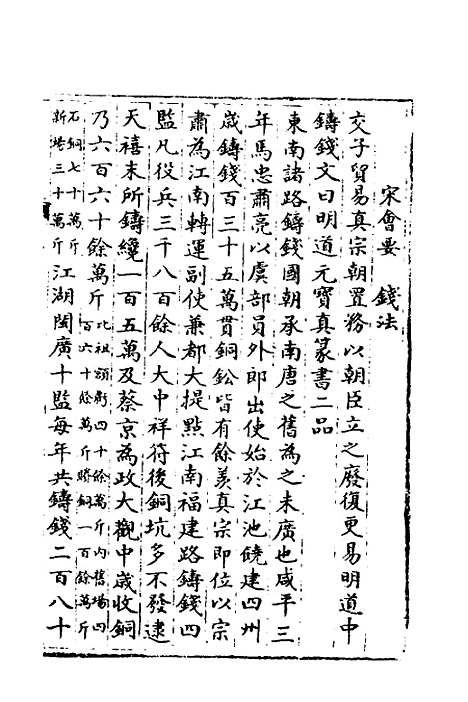 宋會要　錢法
交子貿易真宗朝置務以朝臣立之廢復更易明道中
鑄錢文曰明道元寳真篆書二品
東南諸路鑄錢國朝承南唐之舊為之未廣也咸平三
年馬忠肅亮以虞部員外郎出使始於江池饒建四州
歲鑄錢百三十五萬貫銅鈆皆有餘羨真宗即位以宗
肅為江南轉運副使兼都大提點江南福建路鑄錢四
監凡役兵三千八百餘人大中祥符後銅坑多不發逮
天禧末所鑄纔一百五萬及蔡京為政大觀中歲收銅
乃六百六十餘萬斤比祖額虧四十餘萬斤内舊場四
百六十餘萬斤膽銅一百餘萬斤
石銅七十萬斤
新塲三十萬斤江湖閩廣十監每年共鑄錢二百八十